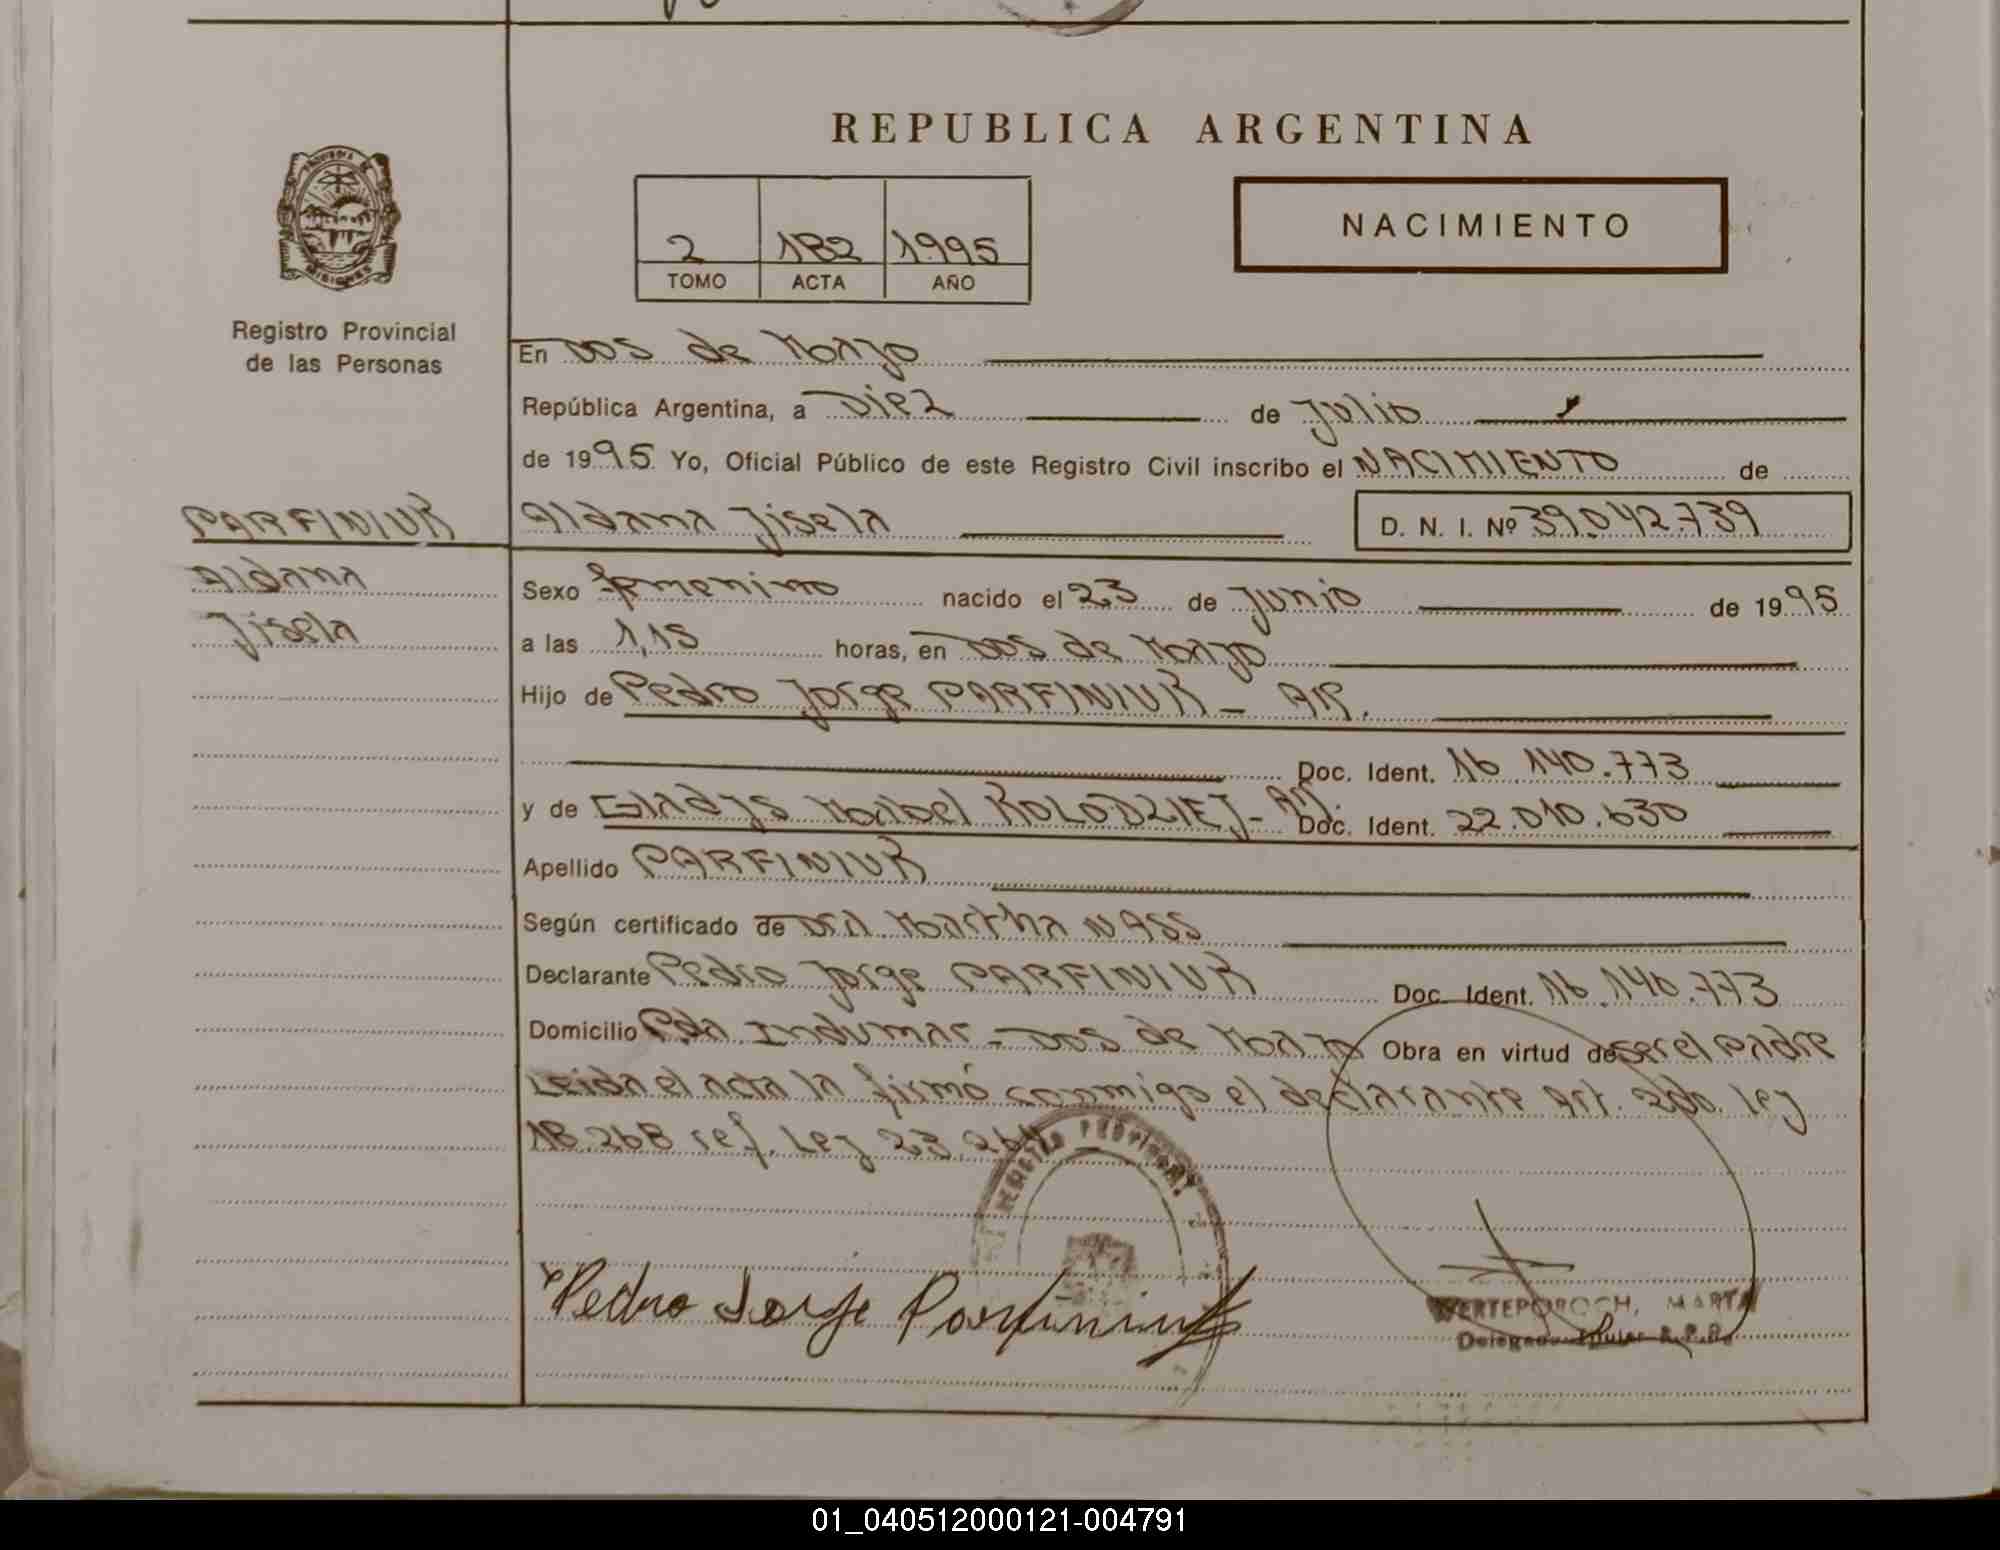 REPUBLICA ARGENTINA
PROVINCIA DE
MISIONES
2 182 1995
TOMO ACTA AÑO
NACIMIENTO
Registro Provincial
de las Personas
En Dos de Mayo
República Argentina, a Diez de Julio
de 1995 Yo, Oficial Público de este Registro Civil inscribo el NACIMIENTO de
PARFINIUK
Aldana Jisela D. N. I. Nº 39.042.739
Aldana
Jisela
Sexo femenino nacido el 23 de Junio de 1995
a las 1,15 horas, en Dos de Mayo
Hijo de Pedro Jorge PARFINIUK - AR.
Doc. Ident. 16.140.773
y de Gladys Mabel KOLODZIEJ - Arj. Doc. Ident. 22.010.630
Apellido PARFINIUK
Según certificado de Dra Martha NASS
Declarante Pedro Jorge PARFINIUK Doc. Ident. 16.140.773
Domicilio Pda Indumar - Dos de Mayo Obra en virtud de ser el padre
Leida el acta la firmó conmigo el declarante Art. 2do. Ley
18.268 ref. Ley 23.264
REGISTRO PROVINCIAL
Pedro Jorge Parfiniuk
WERTEPOROCH, MARTA
Delegado Titular R.P.P.
01_040512000121-004791